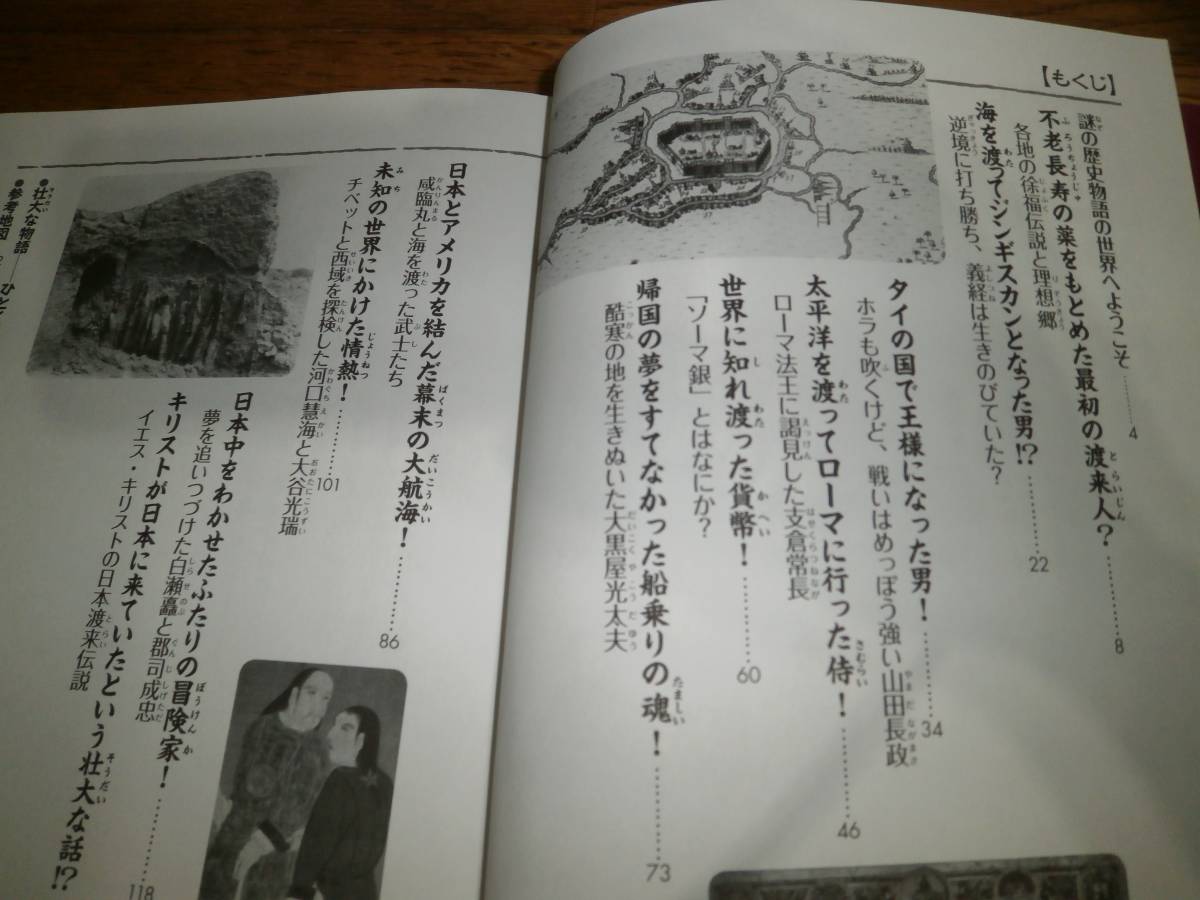 【もくじ】
謎の歴史物語の世界へようこそ………4
不老長寿の薬をもとめた最初の渡来人?………8
各地の徐福伝説と理想郷
海を渡ってジンギスカンとなった男!?………22
逆境に打ち勝ち、義経は生きのびていた?
タイの国で王様になった男!………34
ホラも吹くけど、戦いはめっぽう強い山田長政
太平洋を渡ってローマに行った侍!………46
ローマ法王に謁見した支倉常長
世界に知れ渡った貨幣!………60
「ソーマ銀」とはなにか?
帰国の夢をすてなかった船乗りの魂!………73
酷寒の地を生きぬいた大黒屋光太夫
日本とアメリカを結んだ幕末の大航海!………86
咸臨丸と海を渡った武士たち
未知の世界にかけた情熱!………101
チベットと西域を探検した河口慧海と大谷光瑞
日本中をわかせたふたりの冒険家!………118
夢を追いつづけた白瀬矗と郡司成忠
キリストが日本に来ていたという壮大な話!?
イエス・キリストの日本渡来伝説
●壮大な物語――ひと
●参考地図